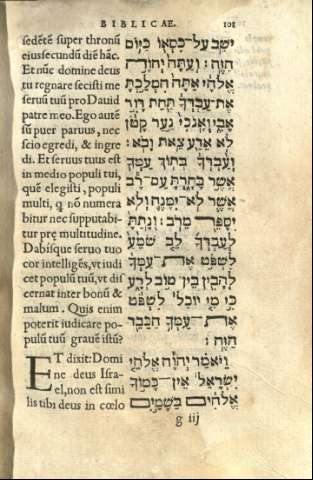 BIBLICAE. 101
sedētē super thronū
eius secundū diē hāc.
Et nūc domine deus
tu regnare fecisti me
seruū tuū pro Dauid
patre meo. Ego autē
sū puer paruus, nec
scio egredi, & ingre
di. Et seruus tuus est
in medio populi tui,
quē elegisti, populi
multi, q nō numera
bitur nec supputabi-
tur pre multitudine.
Dabisque seruo tuo
cor intelligēs, vt iudi
cet populū tuū, vt dis
cernat inter bonū &
malum. Quis enim
poterit iudicare po-
pulū tuū graue istū?
ET dixit: Domi
ne deus Isra-
el, non est simi
lis tibi deus in cœlo
ישב על־כסאו כיום
הזה: ועתה יהוה
אלהי אתה המלכת
את־עבדך תחת דוד
אבי ואנכי נער קטן
לא אדע צאת ובא:
ועבדך בתוך עמך
אשר בחרת עם־רב
אשר לא־ימנה ולא
יספר מרב: ונתת
לעבדך לב שמע
לשפט את־עמך
להבין בין־טוב לרע
כי מי יוכל לשפט
את־עמך הכבד
הזה:
ויאמר יהוה אלהי
ישראל אין־כמוך
אלהים בשמים
g iij